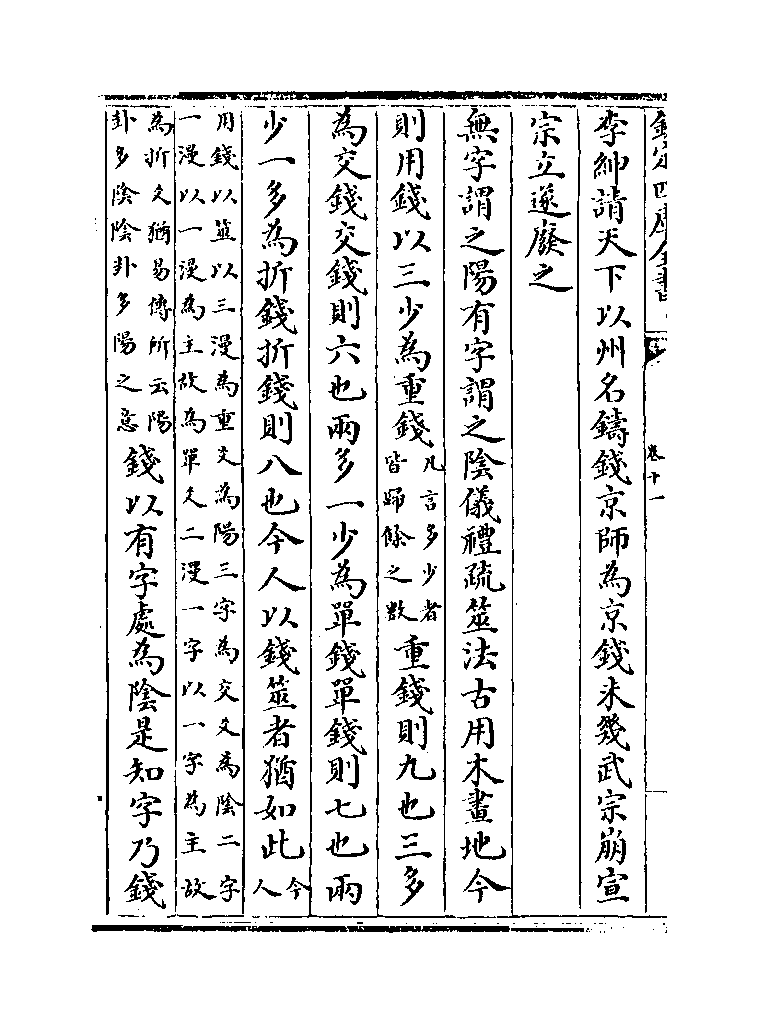 欽定四庫全書
卷十一
李紳請天下以州名鑄錢京師為京錢未幾武宗崩宣
宗立遂廢之
無字謂之陽有字謂之陰儀禮疏筮法古用木畫地今
則用錢以三少為重錢凡言多少者皆歸餘之數重錢則九也三多
為交錢交錢則六也兩多一少為單錢單錢則七也兩
少一多為折錢折錢則八也今人以錢筮者猶如此今人
用錢以筮以三漫為重爻為陽三字為交爻為陰二字
一漫以一漫為主故為單爻二漫一字以一字為主故
為折爻猶易傳所云陽卦多陰陰卦多陽之意錢以有字處為陰是知字乃錢